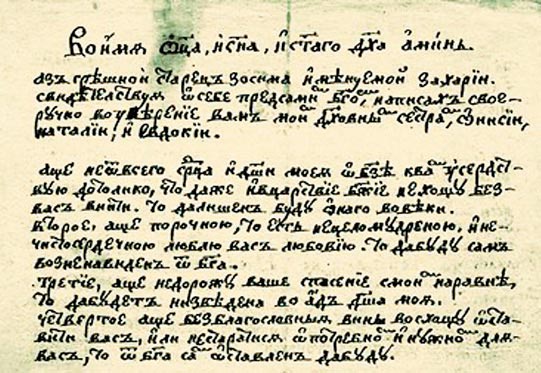 Во и́мѧ ѻц҃а, и҆ сн҃а, и҆ ст҃аго дх҃а а҆ми́нь.
азъ грѣшной старецъ зосима и҆менуемой захарїи.
свидѣтелствую ѡ себе предсамиⷨ бг҃оⷨ, написахъ свое-
ручно воувѣренїе вамъ мои дх҃овныⷨ сестраⷨ, ѳиисїи,
наталїи, и҆ евдокїи.
аще неѿвсего срⷣца и҆ дш҃и моея ѡ бз҃ѣ к ваⷨ усердст-
вую дотолико, что даже и҆ въцарствїе бж҃їе нехощу без-
васъ внити. то далишенъ буду ѻнаго вовѣки.
второе, аще порочною, то есть нецеломудреною, и҆ не-
чистосердечною люблю васъ любовїю. то дабуду самъ
возненавиденъ ѿ бг҃а.
третїе, аще недорожу ваше спасенїе смоиⷨ наравнѣ,
то дабудетъ низведена во а҆дъ дш҃а моя.
четвертое аще безблагословныя вины восхощу ѡста-
вити васъ, или нестаратися ѡ потребноⷨ и҆ нужноⷨ для-
васъ, то ѿ бг҃а саⷨ ѡставленъ дабуду.